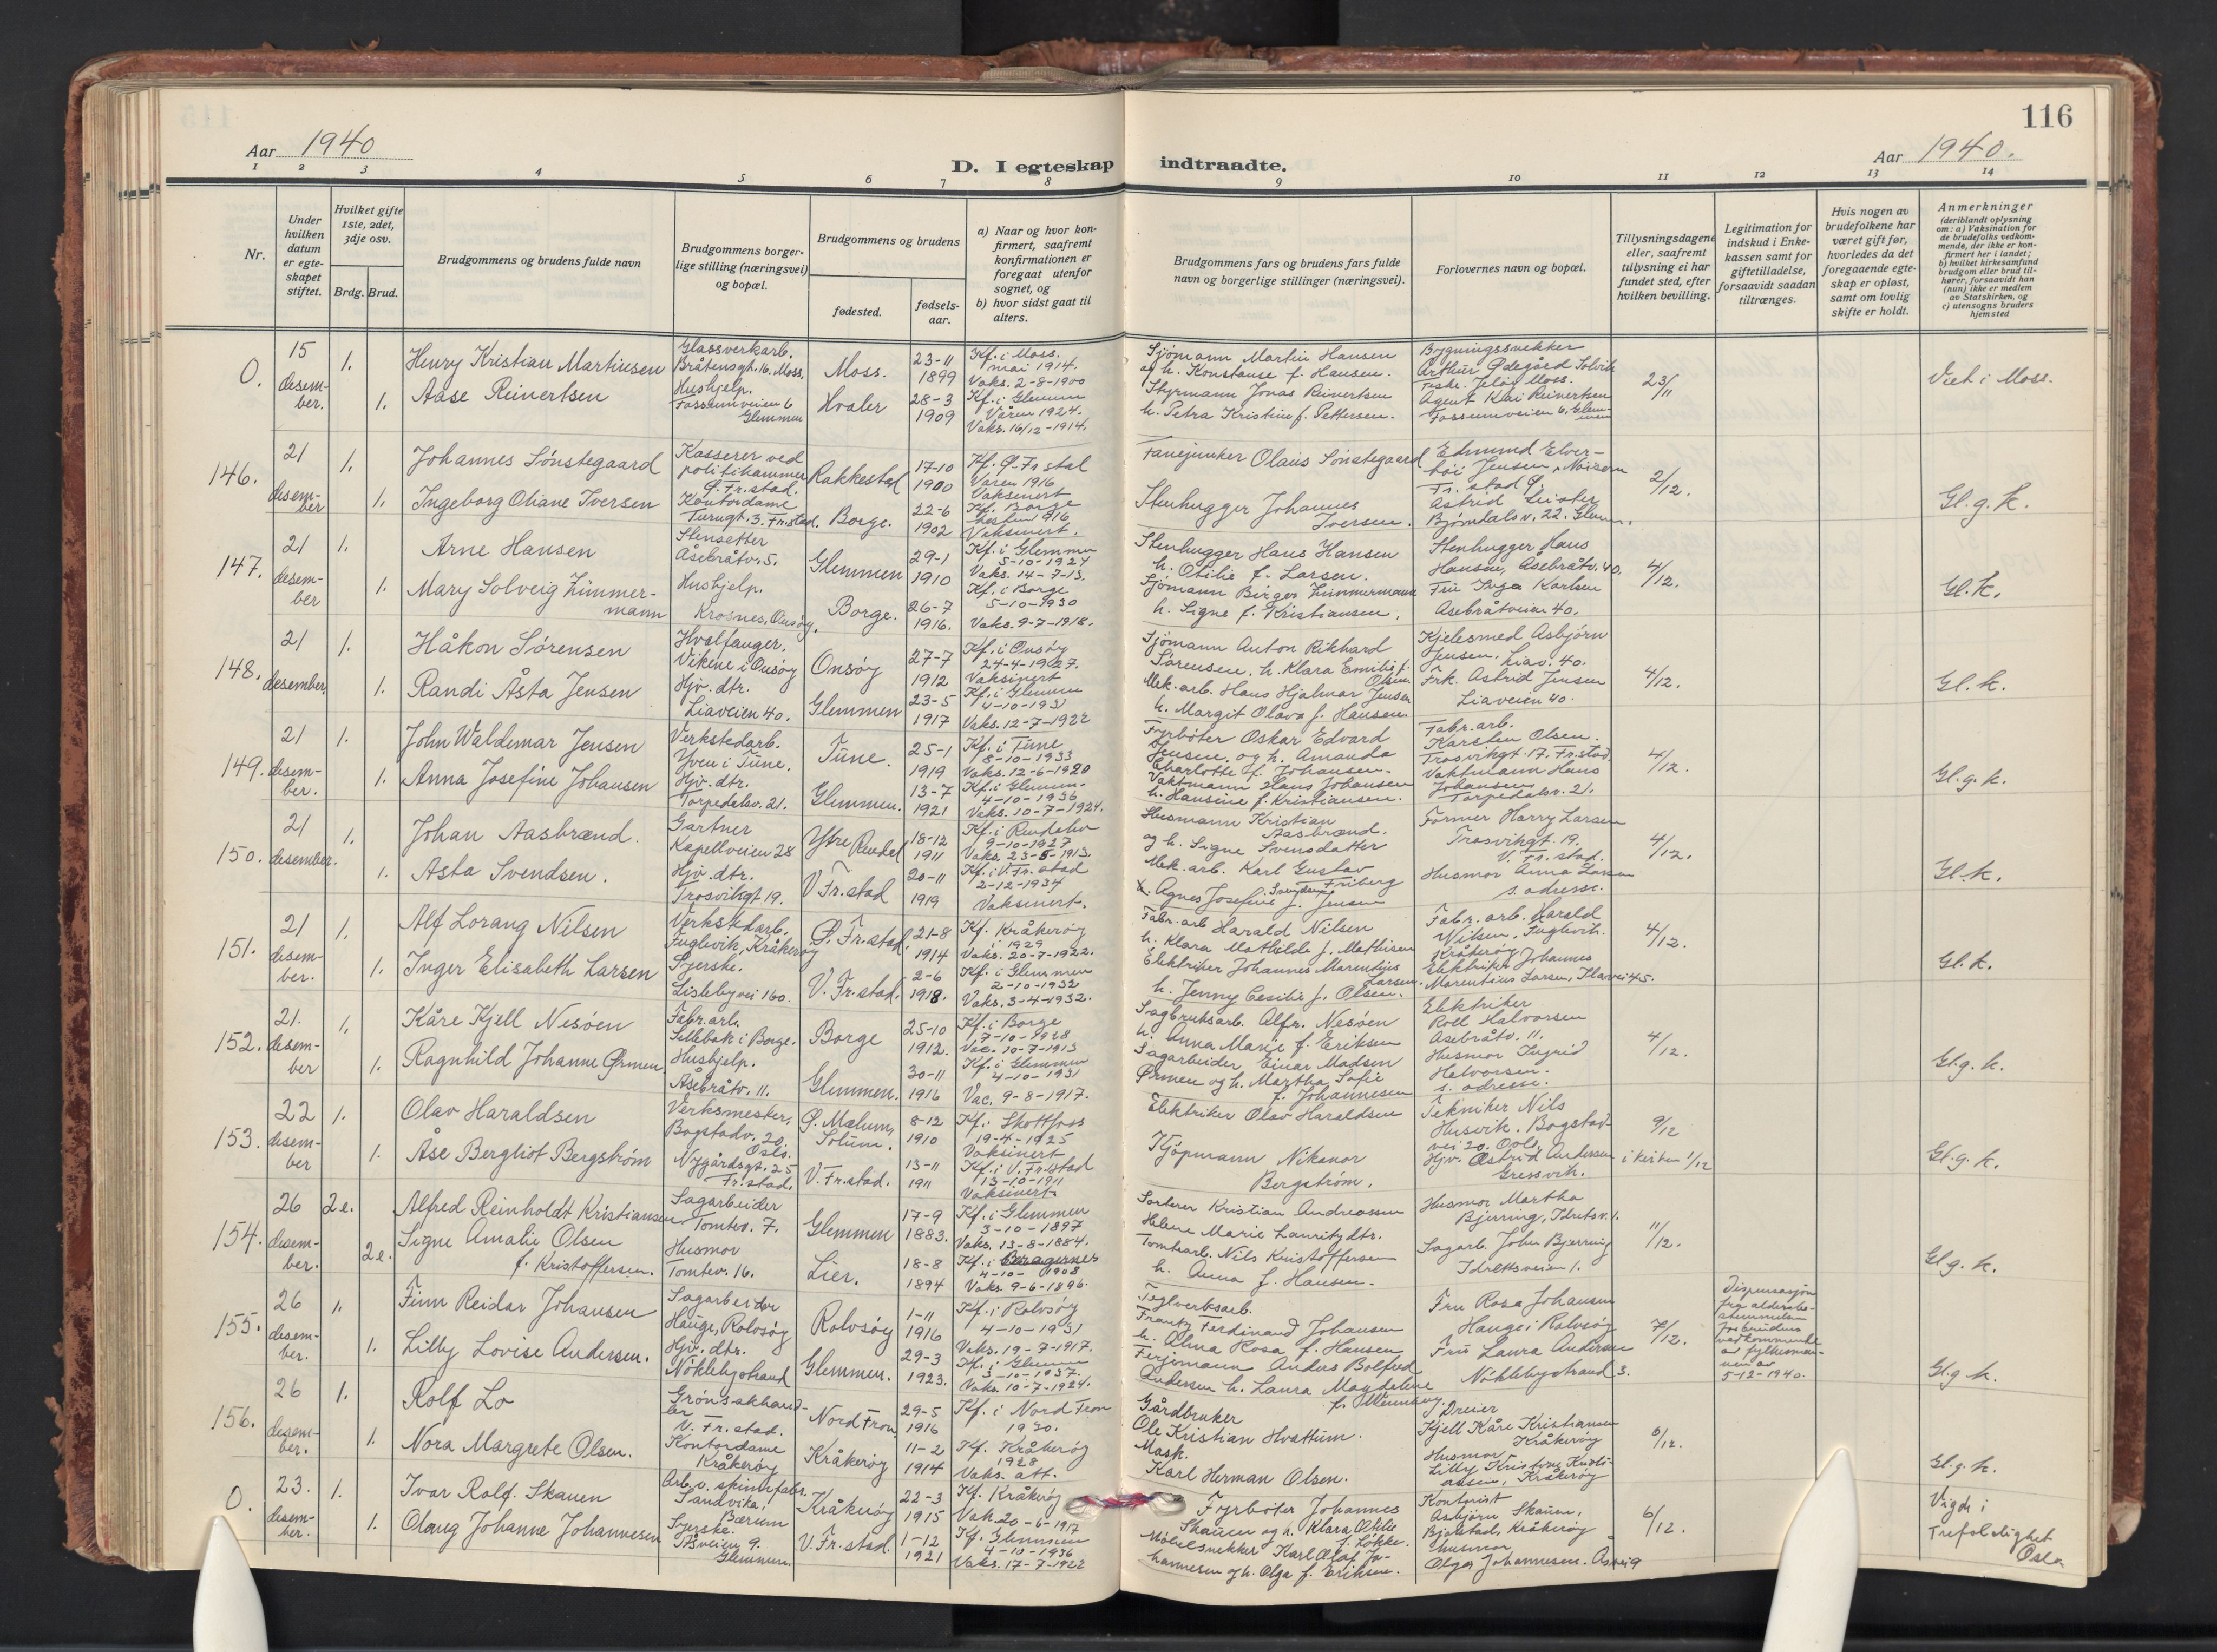 116
Aar 1940
Aar 1940.
D. I egteskap indtraadte.
1 2 3 4 5 6 7 8 9 10 11 12 13 14
Nr.
Under hvilken datum er egteskapet stiftet.
Hvilket gifte 1ste, 2det, 3dje osv.
Brdg. Brud.
Brudgommens og brudens fulde navn
Brudgommens borgerlige stilling (næringsvei) og bopæl.
Brudgommens og brudens
fødested.
fødsels-aar.
a) Naar og hvor konfirmert, saafremt konfirmationen er foregaat utenfor sognet, og
b) hvor sidst gaat til alters.
Brudgommens fars og brudens fars fulde navn og borgerlige stillinger (næringsvei).
Forlovernes navn og bopæl.
Tillysningsdagene eller, saafremt tillysning ei har fundet sted, efter hvilken bevilling.
Legitimation for indskud i Enkekassen samt for giftetilladelse, forsaavidt saadan tiltrænges.
Hvis nogen av brudefolkene har været gift før, hvorledes da det foregaaende egteskap er opløst, samt om lovlig skifte er holdt.
Anmerkninger
(deriblandt oplysning om: a) Vaksination for de brudefolks vedkommende, der ikke er konfirmert her i landet; b) hvilket kirkesamfund brudgom eller brud tilhører, forsaavidt han (hun) ikke er medlem av Statskirken, og c) utensogns bruders hjemsted
0. 15 desember. 1. Henry Kristian Martinsen
Glassverkarb. Bråtengt. 16, Moss.
Moss. 23-11 1899
Kf. i Moss. mai 1914. Vaks. 2-8-1900
Sjømann Martin Hansen og h. Konstanse f. Hansen.
Bygningssnekker Arthur Ødegård Solvik Moss.
23/11
Viet i Moss.
1. Aase Reinertsen
Hushjelp. Fossumveien 6 Glemmen
Hvaler 28-3 1909
Kf. i Glemmen Våren 1924. Vaks. 16/12-1914.
Styrmann Jonas Reinertsen h. Petra Kristine f. Pettersen.
Agent Kai Reinertsen Fossumveien 6, Glemmen
146. 21 desember 1. Johannes Sønstegaard
Kasserer ved politikammer Ø. Fr.stad.
Rakkestad 17-10 1900
Kf. Ø. Fr.stad Våren 1916 Vaksinert
Fanejunker Olaus Sønstegaard
Edmund Elverhøi Jensen,
Fr.stad Ø.
2/12.
Gl.g.k.
1. Ingeborg Oliane Iversen
Kontordame Turngt. 3. Fr.stad.
Borge. 22-6 1902
Kf. Borge høsten 1916 Vaksinert.
Stenhugger Johannes Iversen.
Astrid
Bjørndalsv. 22. Glem.
147. 21 desember 1. Arne Hansen
Stensetter Åsebråtv. 5.
Glemmen 29-1 1910
Kf. i Glemmen 5-10-1924 Vaks. 14-7-13.
Stenhugger Hans Hansen h. Otilie f. Larsen.
Stenhugger Hans Hansen, Åsebråtv. 40.
4/12.
Gl.k.
1. Mary Solveig Zimmermann
Hushjelp. Krosnes, Onsøy.
Borge. 26-7 1916.
Kf. i Borge 5-10-1930 Vaks. 9-7-1918.
Sjømann Birger Zimmermann h. Signe f. Kristiansen.
Fru Inga Karlsen Åsebråtveien 40.
148. 21 desember, 1. Håkon Sørensen
Hvalfanger, Vikene i Onsøy
Onsøy 27-7 1912
Kf. i Onsøy 24-4-1927. Vaksinert
Sjømann Anton Rikhard Sørensen, h. Klara Emilie f. Olsen.
Kjelesmed Asbjørn Jensen, Liav. 40.
4/12.
Gl.k.
1. Randi Åsta Jensen
Hjv. dtr. Liaveien 40.
Glemmen 23-5 1917
Kf. i Glemmen 4-10-1931 Vaks. 12-7-1922
Mek. arb. Hans Hjalmar Jensen h. Margit Olava f. Hansen.
Frk. Astrid Jensen Liaveien 40.
149. 21 desember. 1. John Waldemar Jensen
Verkstedarb. Yven i Tune.
Tune. 25-1 1919
Kf. i Tune 8-10-1933 Vaks. 12-6-1920
Fyrbøter Oskar Edvard Jensen og h. Amanda Charlotte f. Johansen.
Fabr.arb. Karsten Olsen. Trosvikgt. 17. Fr.stad.
4/12.
Gl.g.k.
1. Anna Josefine Johansen
Hjv. dtr. Torpedalsv. 21.
Glemmen. 13-7 1921
Kf. i Glemmen. 4-10-1936 Vaks. 10-7-1924.
Vaktmann Hans Johansen h. Hansine f. Kristiansen.
Vaktmann Hans Johansen Torpedalsv. 21.
150. 21 desember. 1. Johan Aasbrænd.
Gartner Kapellveien 28
Ytre Rendal 18-12 1911
Kf. i Rendalen 9-10-1927 Vaks. 23-5-1913.
Husmann Kristian Aasbrænd. og h. Signe Svensdatter
Former Harry Larsen Trosvikgt. 19. V. Fr.stad.
4/12.
Gl.k.
1. Asta Svendsen.
Hjv. dtr. Trosvikgt 19.
V. Fr.stad 20-11 1919
Kf. i V. Fr.stad 2-12-1934 Vaksinert.
Mek. arb. Karl Gustav Friberg Svendsen h. Agnes Josefine f. Jensen
Husmor Anna Larsen s. adresse.
151. 21 desember. 1. Alf Lorang Nilsen
Verkstdarb. Fuglevik, Kråkerøy
Ø. Fr.stad. 21-8 1914
Kf. Kråkerøy i 1929 Vaks. 20-7-1922.
Fabr. arb Harald Nilsen h. Klara Mathilde f. Mathisen
Fabr. arb. Harald Nilsen, Fuglevik. Kråkerøy
4/12.
Gl.k.
1. Inger Elisabeth Larsen
Syerske. Lislebyvei 160.
V. Fr.stad. 2-6 1918.
Kf. i Glemmen 2-10-1932 Vaks. 3-4-1932.
Elektriker Johannes Marentius Larsen. h. Jenny Cesilie f. Olsen.
Elektriker Johannes Marentius Larsen, 45.
152. 21. desember 1. Kåre Kjell Nesøen
Fabr. arb. Sellebak i Borge.
Borge 25-10 1912.
Kf. i Borge 7-10-1928 Vac. 10-7-1913
Sagbruksarb. Alfr. Nesøen h. Anna Marie f. Eriksen
Elektriker Rolf Halvorsen Åsebråtv. 11.
4/12.
Gl.g.k.
1. Ragnhild Johanne Ørmen
Hushjelp. Åsebråtv. 11.
Glemmen. 30-11 1916
Kf. i Glemmen 4-10-1931 Vac. 9-8-1917.
Sagarbeider Einar Madsen Ørmen og h. Martha Sofie f. Johannesen
Husmor Ingrid Halvorsen. s. adresse.
153. 22 desember 1. Olav Haraldsen
Verksmester, Bogstadv. 20. Oslo.
Ø. Mælum, Solum. 8-12 1910
Kf. i Skotfoss 19-4-1925 Vaksinert
Elektriker Olav Haraldsen
Tekniker Nils Husvik. Bogstadvei 20. Oslo.
9/12
i kirken 1/12
Gl.g.k.
1. Åse Bergliot Bergstrøm
Nygårdsgt. 25 Fr.stad.
V. Fr.stad. 13-11 1911
Kf. i V. Fr.stad 13-10-1911 Vaksinert
Kjøpmann Nikanor Bergstrøm.
Hjv. Astrid Andersen Gressvik.
154. 26 desember. 2e. Alfred Reinholdt Kristiansen
Sagarbeider Tomtev. 7.
Glemmen 17-9 1883.
Kf. i Glemmen 3-10-1897 Vaks. 13-8-1884.
Sorterer Kristian Andreassen Helene Marie Lauritzdtr.
Husmor Martha Bjerring, Idretsv. 1.
11/12.
Gl.g.k.
2e. Signe Amalie Olsen f. Kristoffersen.
Husmor Tomtev. 16.
Lier. 18-8 1894
Kf. i Bragernes 4-10-1908 Vaks. 9-6-1896.
Tomtearb. Nils Kristoffersen h. Anna f. Hansen.
Sagarb. John Bjerring Idrettsveien 1.
155. 26 desember. 1. Finn Reidar Johansen
Sagarbeider Hauge, Rolvsøy
Rolvsøy 1-11 1916
Kf. i Rolvsøy 4-10-1931 Vaks. 19-7-1917.
Teglverksarb. Frantz Ferdinand Johansen h. Alma Rosa f. Hansen
Fru Rosa Johansen Hauge i Rolvsøy
7/12.
Dispensasjon fra aldersbestemmelsen for brudens vedkommende av fylkesmannen av 5-12-1940.
Gl.g.k.
1. Lilly Lovise Andersen.
Hjv. dtr. Nøklebystrand
Glemmen. 29-3 1923.
Kf. i Glemmen 3-10-1937. Vaks. 10-7-1924.
Ferjemann Anders Bolfred Andersen h. Laura Magdelene f. Wennberg.
Fru Laura Andersen Nøklebystrand 3.
156. 26 desember. 1. Rolf Lo
Grønsakhandler V. Fr.stad.
Nord Fron 29-5 1916
Kf. i Nord Fron 1930.
Gårdbruker Ole Kristian Hvattum.
Dreier Kjell Kåre Kristiansen Kråkerøy
6/12.
Gl.g.k.
1. Nora Margrete Olsen.
Kontordame Kråkerøy
Kråkerøy 11-2 1914
Kf. Kråkerøy 1928 Vaks. att.
Mask. Karl Herman Olsen.
Husmor Lilly Kristiansen, Kråkerøy
0. 23. desember. 1. Ivar Rolf Skauen
Arb. v. skinnfabr. Sandvika, Bærum
Kråkerøy 22-3 1915
Kf. Kråkerøy Vak. 20-6-1917
Fyrbøter Johannes Skauen og h. Klara Otilie f. Løkke.
Kontorist Asbjørn Skauen, Bjølstad, Kråkerøy
6/12.
Vigde i Trefoldighet Oslo
1. Olaug Johanne Johannesen
Syerske. Åsveien 9. Glemmen.
V. Fr.stad. 1-12 1921
Kf. Glemmen 4-10-1936 Vaks. 17-7-1922
Møbelsnekker Karl Olaf Johannesen og h. Olga f. Eriksen.
husmor Olga Johannesen. Åsvei 9